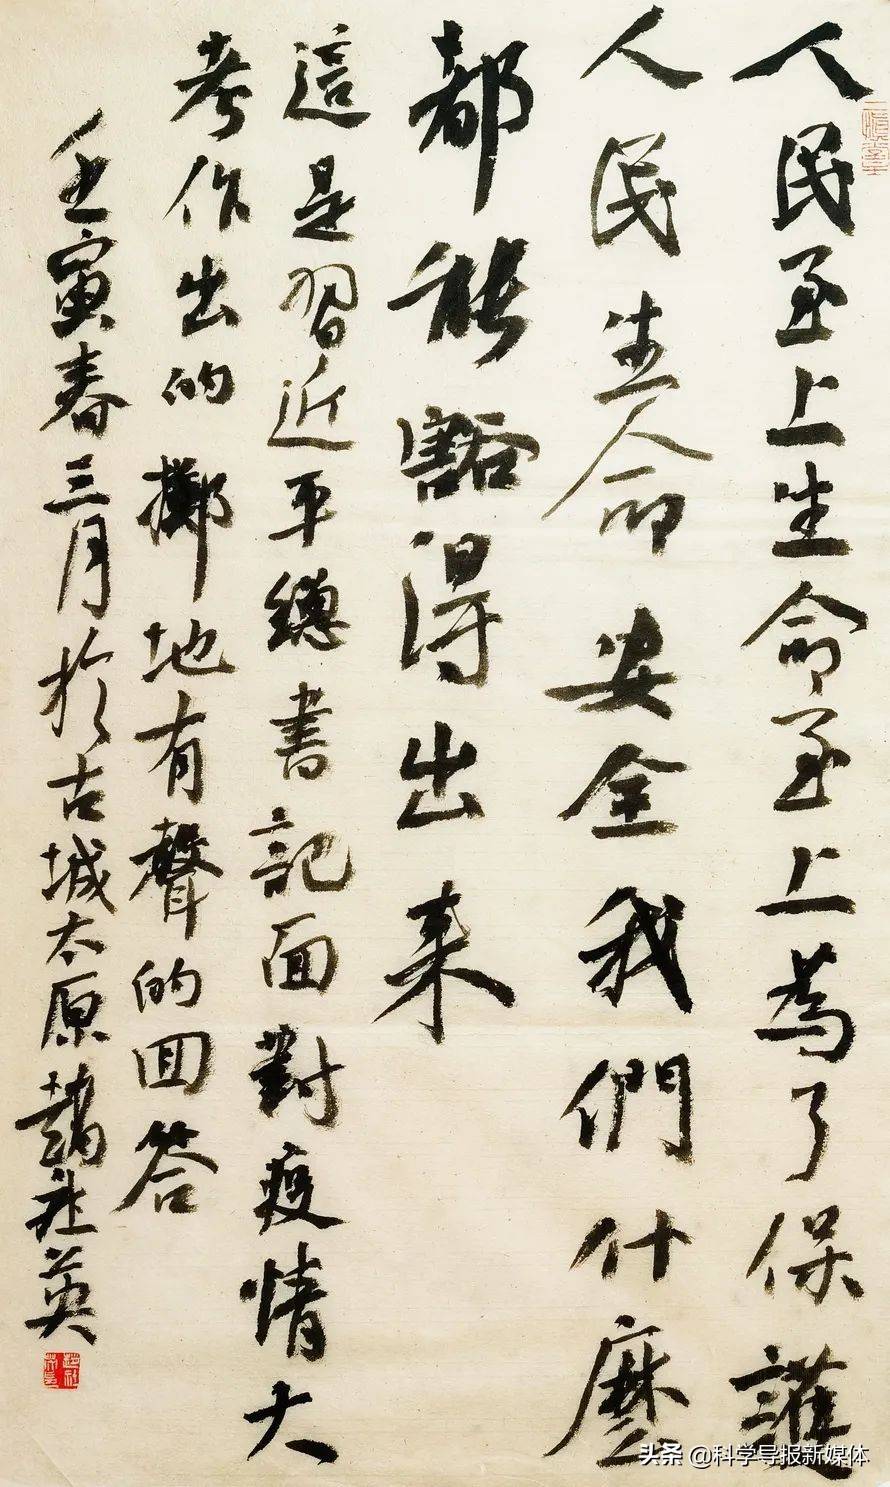 人民至上生命至上為了保護
人民生命安全我們什麼
都能豁得出来
這是習近平總書記面對疫情大
考作出的擲地有聲的回答
壬寅春三月於古城太原趙社英
头条 @科学导报新媒体